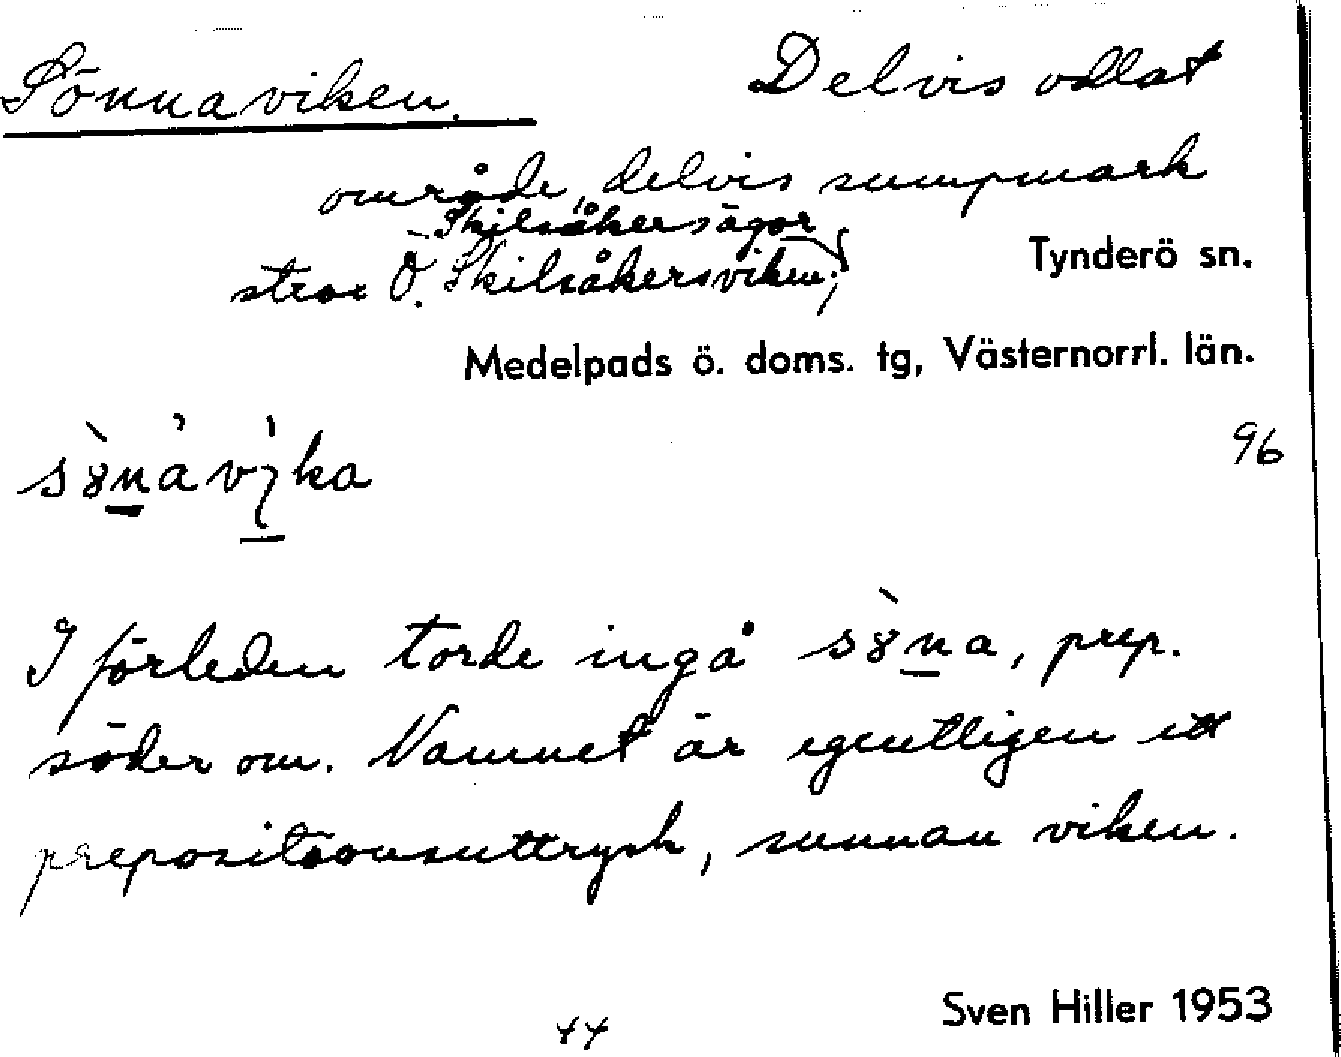 Sönnaviken. Delvis odlat
område, delvis sumpmark
Skilsåkersägor
strax Ö. Skilsåkersviken; Tynderö sn.
Medelpads ö. doms. tg, Västernorrl. län.
96
I förleden torde ingå , prep.
söder om. Namnet är egentligen ett
prepositionsuttryck, sunnan viken.
Sven Hiller 1953